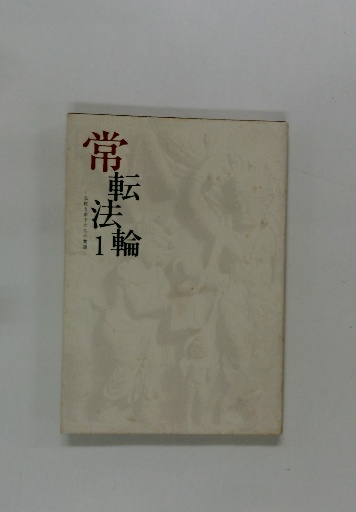 常転法輪
1